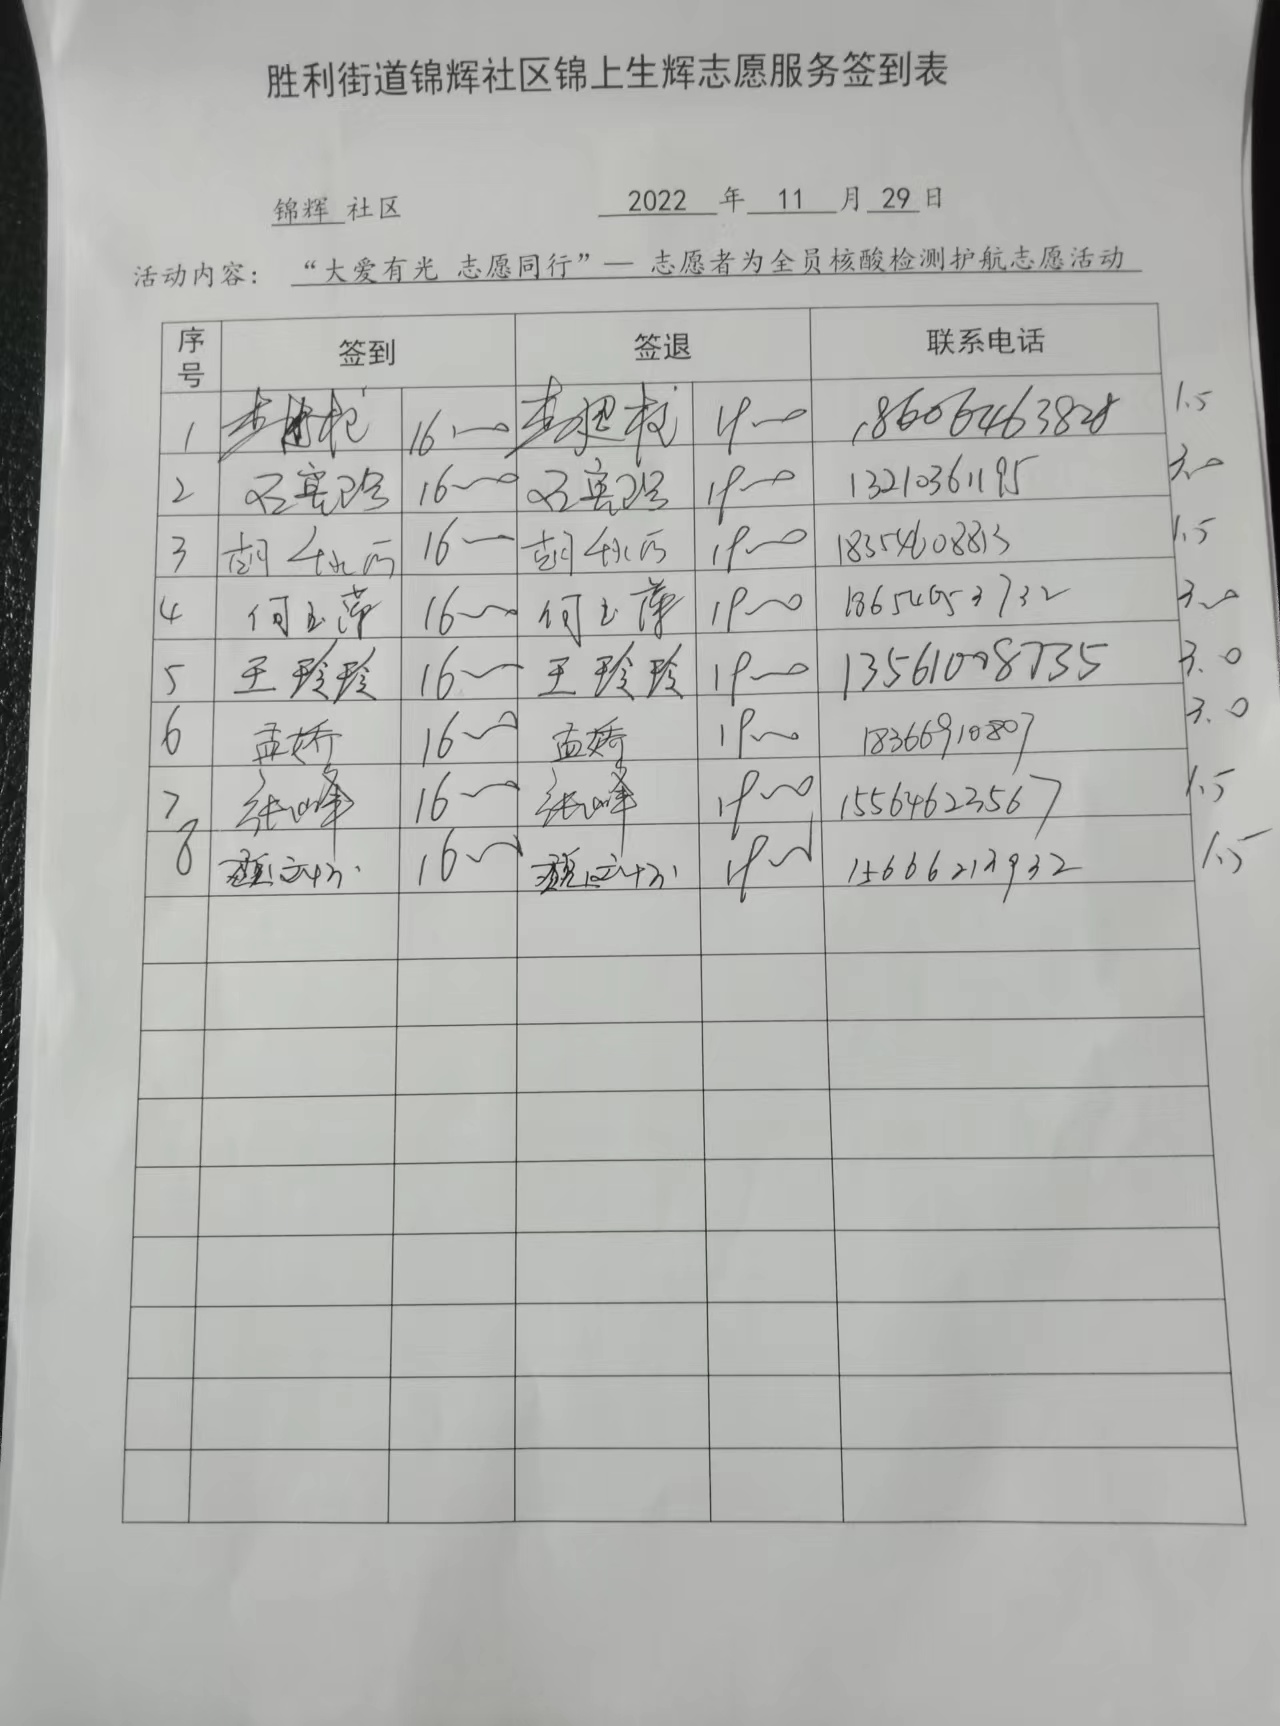 胜利街道锦辉社区锦上生辉志愿服务签到表
锦辉 社区 2022 年 11 月 29 日
活动内容： “大爱有光 志愿同行”— 志愿者为全员核酸检测护航志愿活动
序号 签到 签退 联系电话
1 16:00 19:00 18606463828 1.5
2 16:00 19:00 13210361195 3.0
3 胡 16:00 胡 19:00 18354608813 1.5
4 何玉萍 16:00 何玉萍 19:00 18654653732 3.0
5 王玲玲 16:00 王玲玲 19:00 13561098735 3.0
6 孟娇 16:00 孟娇 19:00 18366910807 3.0
7 张峰 16:00 张峰 19:00 15564623567 1.5
8 16:00 19:00 1.5